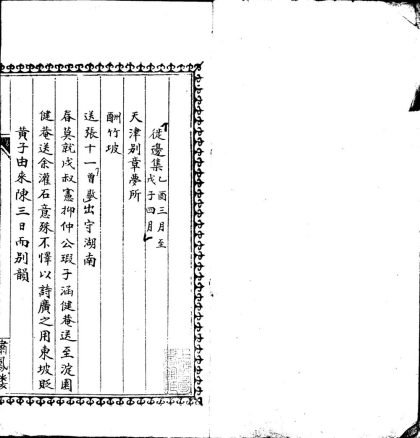 徙邊集乙酉三月至戊子四月
天津别章夢所
酬竹坡
送張十一曽敭出守湖南
春莫就戍叔憲抑仲公瑕子涵健菴送至淀園
健菴送余灌石意殊不懌以詩廣之用東坡貶
黄子由來陳三日而别韻